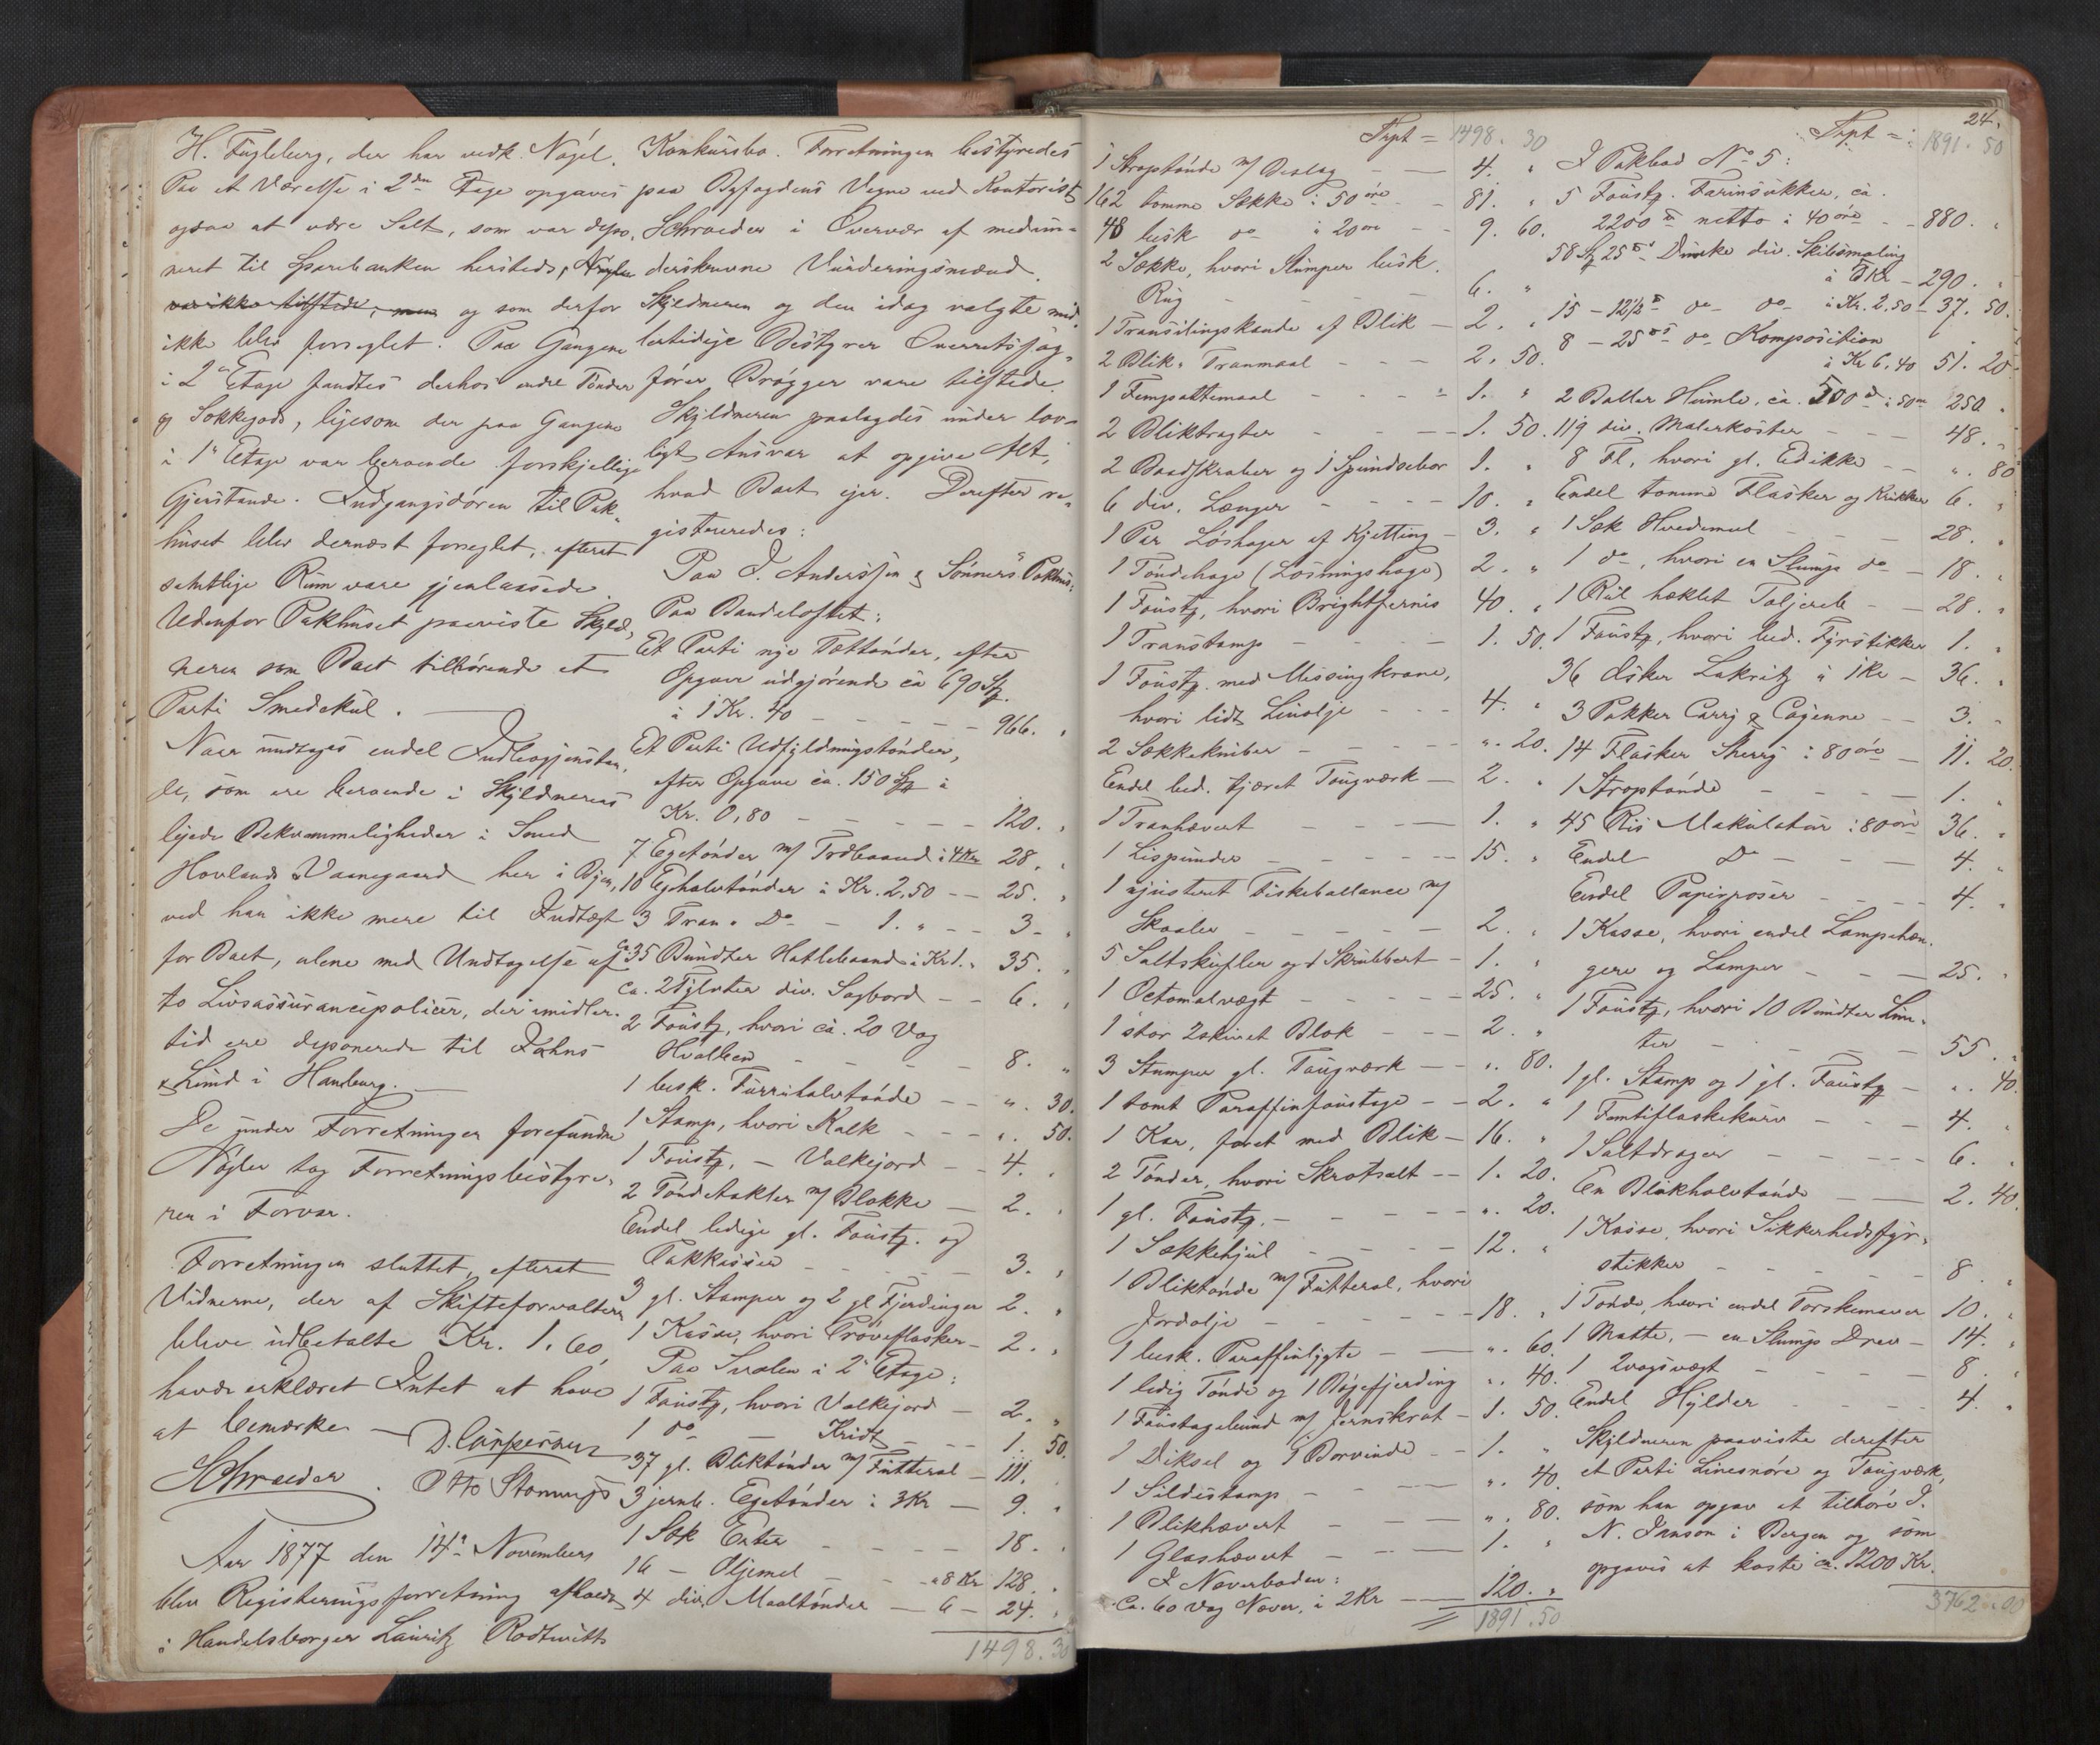 H. Fugleberg, der har vedk. Nøgel.
Paa et Værelse i 2den Etage opgaves
ogsaa at være Salt, som var depo-
neret til Sparebanken hersteds, Nøglen
var ikke tilstede, men og som derfor
ikke blev forseglet. Paa Gangene
i 2den Etage fandtes derhos endel Tønder
og Sækkegods, ligesom der paa Gangene
i 1ste Etage var beroende forskjellige
Gjenstande. Indgangsdøren til Pak-
huset blev dernæst forseglet, efterat
samtlige Rum vare gjenlaasede.
Udenfor Pakhuset paaviste Skyld-
neren som Boet tilhørende et
Parti Smedekul.
Naar undtages endel Indbogjenstan-
de, som ere beroende i Skyldnerens
lejede Bekvemmeligheder i Smed
Hovlands Vaanegaard her i Byen,
ved han ikke mere til Indtægt
for Boet, alene med Undtagelse af
to Livsassurancepolicer, der imidler-
tid ere deponerede til Jahns
& Lund i Hamburg.
De under Forretningen forefundne
Nøgler tog Forretningsbestyre-
ren i Forvar.
Forretningen sluttet, efterat
Vidnerne, der af Skifteforvalteren
bleve udbetalte Kr. 1.60,
havde erklæret Intet at have
at bemærke
D. Caspersen
Schroeder. Otto Stormup
Aar 1877 den 14de November
blev Registreringsforretning afholdt
i Handelsborger Lauritz Rodtwitts
Konkursbo. Forretningen bestyredes
paa Byfogdens Vegne ved Kontorist
Schroeder i Overvær af medun-
derskrevne Vurderingsmænd.
Skyldneren og den idag valgte mid-
lertidige Bestyrer Overretssag-
fører Brøgger vare tilstede.
Skyldneren paalagdes under lov-
ligt Ansvar at opgive Alt,
hvad Boet ejer. Derefter re-
gistreredes:
Paa J. Anderssen & Sønners Pakhus:
Paa Baadeloftet:
Et Parti nye Tættønder, efter
Opgave udgjørende ca 690 St.
à 1 Kr. 40 - - - - 966. "
Et Parti Udfyldningstønder,
efter Opgave ca. 150 St. à
Kr. 0,80 - - - - 120. "
7 Egetønder m/ Træbaand à 4 Kr 28. "
10 Egehalvtønder à Kr. 2,50 - - 25. "
3 Tran- Do - 1. " - - 3. "
Ca 35 Bundter Hatlebaand à Kr 1. " 35. "
Ca. 2 Tylvter div. Sagbord - - 6. "
2 Foustg, hvori ca. 20 Vog
Hvalben - - - - 8. "
1 besk. Furruhalvtønde - - ". 30.
1 Stamp, hvori Kalk - - - ". 50.
1 Foustg, - Valkejord - - 4. "
2 Tøndetakler m/ Blokke - 2. "
Endel ledige gl. Foustg. og
Pakkasser - - - - 3. "
3 gl. Stamper og 2 gl Fjerdinger 2. "
1 Kasse, hvori Prøveflasker - 2. "
Paa Svalen i 2den Etage:
1 Foustg, hvori Valkejord - 2. "
1 do - Kridt - - - 1. 50.
37 gl. Bliktønder m/ Futteral - 111. "
3 jernb. Egetønder à 3 Kr - 9. "
1 Sæk Erter - - - - 18. "
16 - Oljemel - - - à 8 Kr 128. "
4 div. Maaltønder - 6 - 24. "
1498. 30
24.
Trpt = 1498. 30
1 Stroptønde m/ Beslag - - 4. "
162 tomme Sække à 50 øre - 81. "
48 besk do à 20 øre - - 9. 60.
2 Sække, hvori Stumper besk.
Rug - - - - 6. "
1 Transilingskande af Blik - 2. "
2 Blik- Tranmaal - - - 2. 50.
1 Fempottemaal - - - - 1. "
2 Bliktragter - - - 1. 50.
2 Baadskraber og 1 Spundsebor 1. "
6 div. Længer - - - - 10. "
1 Par Løshager af Kjetting - 3. "
1 Tøndehage (Løsningshage) 2. "
1 Foustg, hvori Brightfernis 40. "
1 Transtamp - - - - 1. 50.
1 Foustg. med Missingkrane,
hvori lidt Linolje - - - 4. "
2 Sækkekniber - - - - ". 20.
Endel bed. tjæret Tougværk - 2. "
1 Tranhævert - - - 1. "
1 Lispunder - - - - 15. "
1 ajusteret Diskeballance m/
Skaaler - - - - - 2. "
5 Saltskufler og 1 Skrubbert - 1. "
1 Octomalvægt - - - - 25. "
1 stor 2skivet Blok - - - 2. "
3 Stumper gl. Tougværk - - ". 80.
1 tomt Paraffinfoustage - - 2. "
1 Kar, foret med Blik - 16. "
2 Tønder, hvori Skrotsalt - - 1. 20.
1 gl. Foustg. - - - - - ". 20.
1 Sækkehjul - - - - 12. "
1 Bliktønde m/ Futteral, hvori
Jordolje - - - - - 18. "
1 besk. Paraffinlygte - - ". 60.
1 ledig Tønde og 1 Bøgefjerding ". 40.
1 Foustagebund m/ Jernskrot - 1. 50.
1 Diksel og 1 Borvinde - - 1. "
1 Sildestamp - - - - ". 40.
1 Blikhævert - - - ". 80.
1 Glashævert - - - 1. "
I Næverboden:
Ca. 60 Vog Næver, à 2 Kr - - 120. "
1891. 50
Trpt = 1891. 50
I Pakbod No 5:
5 Foustg. Farinsukker, ca.
2200 ℔ netto à 40 øre - - 880. "
58 St 25 ℔s Dunke div. Skibsmaling
à 5 Kr - 290. "
15 - 12½ ℔ do - do - à Kr. 2.50 - 37. 50.
8 - 25 ℔s do Komposition
à Kr 6,40 51. 20
2 Baller Humle, ca. 500 ℔ à 50 øre 250. "
119 div. Malerkoster - - - 48. "
8 Fl., hvori gl. Edikke - - ". 80
Endel tomme Flasker og Krukker 6. "
1 Sæk Hvedemel - - - 28. "
1 do -, hvori en Slump do - 18. "
1 Rul hæklet Taljereb - - 28. "
1 Foustg, hvori bed. Fyrstikker 1. "
36 Æsker Lakritz à 1 Kr - 36. "
3 Pakker Carry & Cayenne - - 3. "
14 Flasker Sherry à 80 øre - 11. 20.
1 Stroptønde - - - - 1. "
45 Ris Makulatur à 80 øre 36. "
Endel Do - - - - 4. "
Endel Papirposer - - - 4. "
1 Kasse, hvori endel Lampehæn-
gere og Lamper - - - 25. "
1 Foustg, hvori 10 Bundter Lun-
ter - - - - - 55. "
1 gl. Stamp og 1 gl. Foustg - ". 40.
1 Femtiflaskekurv - - - 4. "
1 Saltdrager - - - - 6. "
En Blikhalvtønde - - - 2. 40.
1 Kasse, hvori Sikkerhedsfyr-
stikker - - - - - 8 "
1 Tønde, hvori endel Torskemaver 10. "
1 Matte, - en Slump Drev - 14. "
1 2vogsvægt - - - - 8. "
Endel Hylder - - - - 4. "
Skyldneren paaviste derefter
et Parti Linesnøre og Tougværk,
som han opgav at tilhøre J.
N. Janson i Bergen og som
opgaves at koste ca. 1200 Kr.
3762. 00